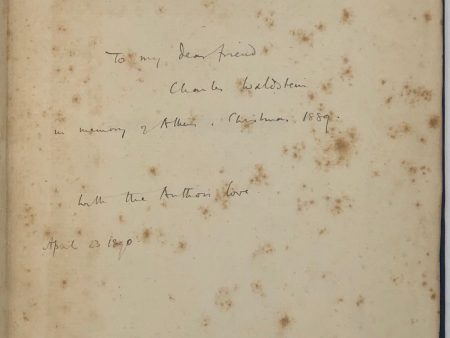 To my dear friend
Charles Waldstein
in memory of Athens. Christmas 1889.
With the Authors love.
April 23 1890